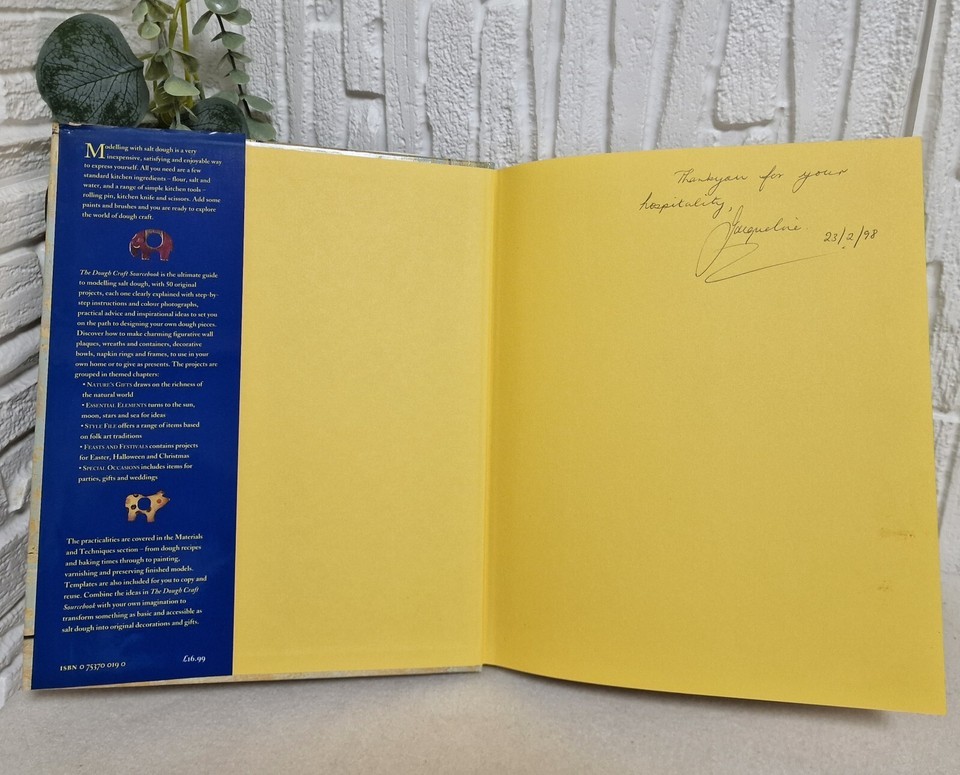 Modelling with salt dough is a very
inexpensive, satisfying and enjoyable way
to express yourself. All you need are a few
standard kitchen ingredients – flour, salt and
water, and a range of simple kitchen tools –
rolling pin, kitchen knife and scissors. Add some
paints and brushes and you are ready to explore
the world of dough craft.
The Dough Craft Sourcebook is the ultimate guide
to modelling salt dough, with 50 original
projects, each one clearly explained with step-by-
step instructions and colour photographs,
practical advice and inspirational ideas to set you
on the path to designing your own dough pieces.
Discover how to make charming figurative wall
plaques, wreaths and containers, decorative
bowls, napkin rings and frames, to use in your
own home or to give as presents. The projects are
grouped in themed chapters:
• NATURE'S GIFTS draws on the richness of
the natural world
• ESSENTIAL ELEMENTS turns to the sun,
moon, stars and sea for ideas
• STYLE FILE offers a range of items based
on folk art traditions
• FEASTS AND FESTIVALS contains projects
for Easter, Halloween and Christmas
• SPECIAL OCCASIONS includes items for
parties, gifts and weddings
The practicalities are covered in the Materials
and Techniques section – from dough recipes
and baking times through to painting,
varnishing and preserving finished models.
Templates are also included for you to copy and
reuse. Combine the ideas in The Dough Craft
Sourcebook with your own imagination to
transform something as basic and accessible as
salt dough into original decorations and gifts.
ISBN 0 75370 019 0
£16.99
Thankyou for your
hospitality,
Jacqueline.
23/2/98